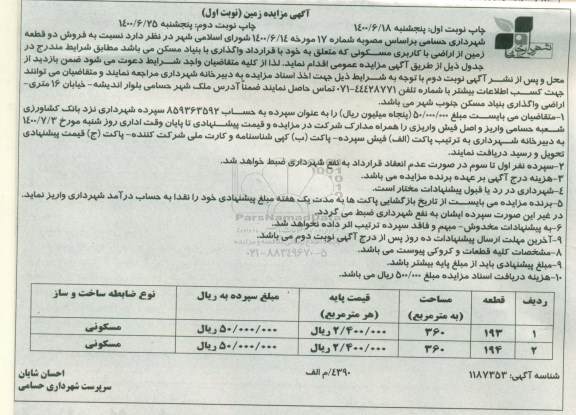 آگهی مزایده زمین (نوبت اول)
چاپ نوبت اول: پنجشنبه ۱۴۰۰/۶/۱۸ چاپ نوبت دوم: پنجشنبه ۱۴۰۰/۶/۲۵
شهرداری حسامی براساس مصوبه شماره ۱۷ مورخه ۱۴۰۰/۶/۱۴ شورای اسلامی شهر در نظر دارد نسبت به فروش دو قطعه
زمین از اراضی با کاربری مسکونی که متعلق به خود با قرارداد واگذاری با بنیاد مسکن می باشد مطابق شرایط مندرج در
جدول ذیل از طریق آگهی مزایده عمومی اقدام نماید. لذا از کلیه متقاضیان واجد شرایط دعوت می شود ضمن بازدید از
محل و پس از نشر آگهی نوبت دوم با توجه به شرایط ذیل جهت اخذ اسناد مزایده به دبیرخانه شهرداری مراجعه نمایند و متقاضیان می توانند
جهت کسب اطلاعات بیشتر با شماره تلفن ۰۷۱-۴۴۴۲۸۷۷۱ تماس حاصل نمایند ضمناً آدرس ملک شهر حسامی بلوار اندیشه- خیابان ۱۶ متری-
اراضی واگذاری بنیاد مسکن جنوب شهر می باشد.
۱-متقاضیان می بایست مبلغ ۵۰/۰۰۰/۰۰۰ (پنجاه میلیون ریال) را به عنوان سپرده به حساب ۸۵۹۳۶۳۵۹۲ سپرده شهرداری نزد بانک کشاورزی
شعبه حسامی واریز و اصل فیش واریزی را همراه مدارک شرکت در مزایده و قیمت پیشنهادی تا پایان وقت اداری روز شنبه مورخ ۱۴۰۰/۷/۳
به دبیرخانه شهرداری به ترتیب پاکت (الف) فیش سپرده- پاکت (ب) کپی شناسنامه و کارت ملی شرکت کننده- پاکت (ج) قیمت پیشنهادی
تحویل و رسید دریافت نمایند.
۲-سپرده نفر اول تا سوم در صورت عدم انعقاد قرارداد به نفع شهرداری ضبط خواهد شد.
۳-هزینه درج آگهی بر عهده برنده مزایده می باشد.
۴-شهرداری در رد یا قبول پیشنهادات مختار است.
۵-برنده مزایده می بایست از تاریخ بازگشایی پاکت ها به مدت یک هفته مبلغ پیشنهادی خود را نقدا به حساب درآمد شهرداری واریز نماید.
در غیر این صورت سپرده ایشان به نفع شهرداری ضبط می گردد.
۶-به پیشنهادات مخدوش- مبهم و فاقد سپرده ترتیب اثر داده نخواهد شد.
۷-آخرین مهلت ارسال پیشنهادات ده روز پس از درج آگهی نوبت دوم می باشد.
۸-مشخصات کلیه قطعات و کروکی پیوست می باشد.
۹-مبلغ پیشنهادی باید از مبلغ پایه بیشتر باشد.
۱۰-هزینه دریافت اسناد مزایده مبلغ ۵۰۰/۰۰۰ ریال می باشد.
ParsNamadData
۰۲۱-۸۸۳۴۹۶۷۰-۵
ردیف قطعه مساحت (به مترمربع) قیمت پایه (هر مترمربع) مبلغ سپرده به ریال نوع ضابطه ساخت و ساز
۱ ۱۹۳ ۳۶۰ ۲/۴۰۰/۰۰۰ ریال ۵۰/۰۰۰/۰۰۰ ریال مسکونی
۲ ۱۹۴ ۳۶۰ ۲/۴۰۰/۰۰۰ ریال ۵۰/۰۰۰/۰۰۰ ریال مسکونی
شناسه آگهی: ۱۱۸۷۳۵۳ ۴۳۹۰/م الف
احسان شایان
سرپرست شهرداری حسامی